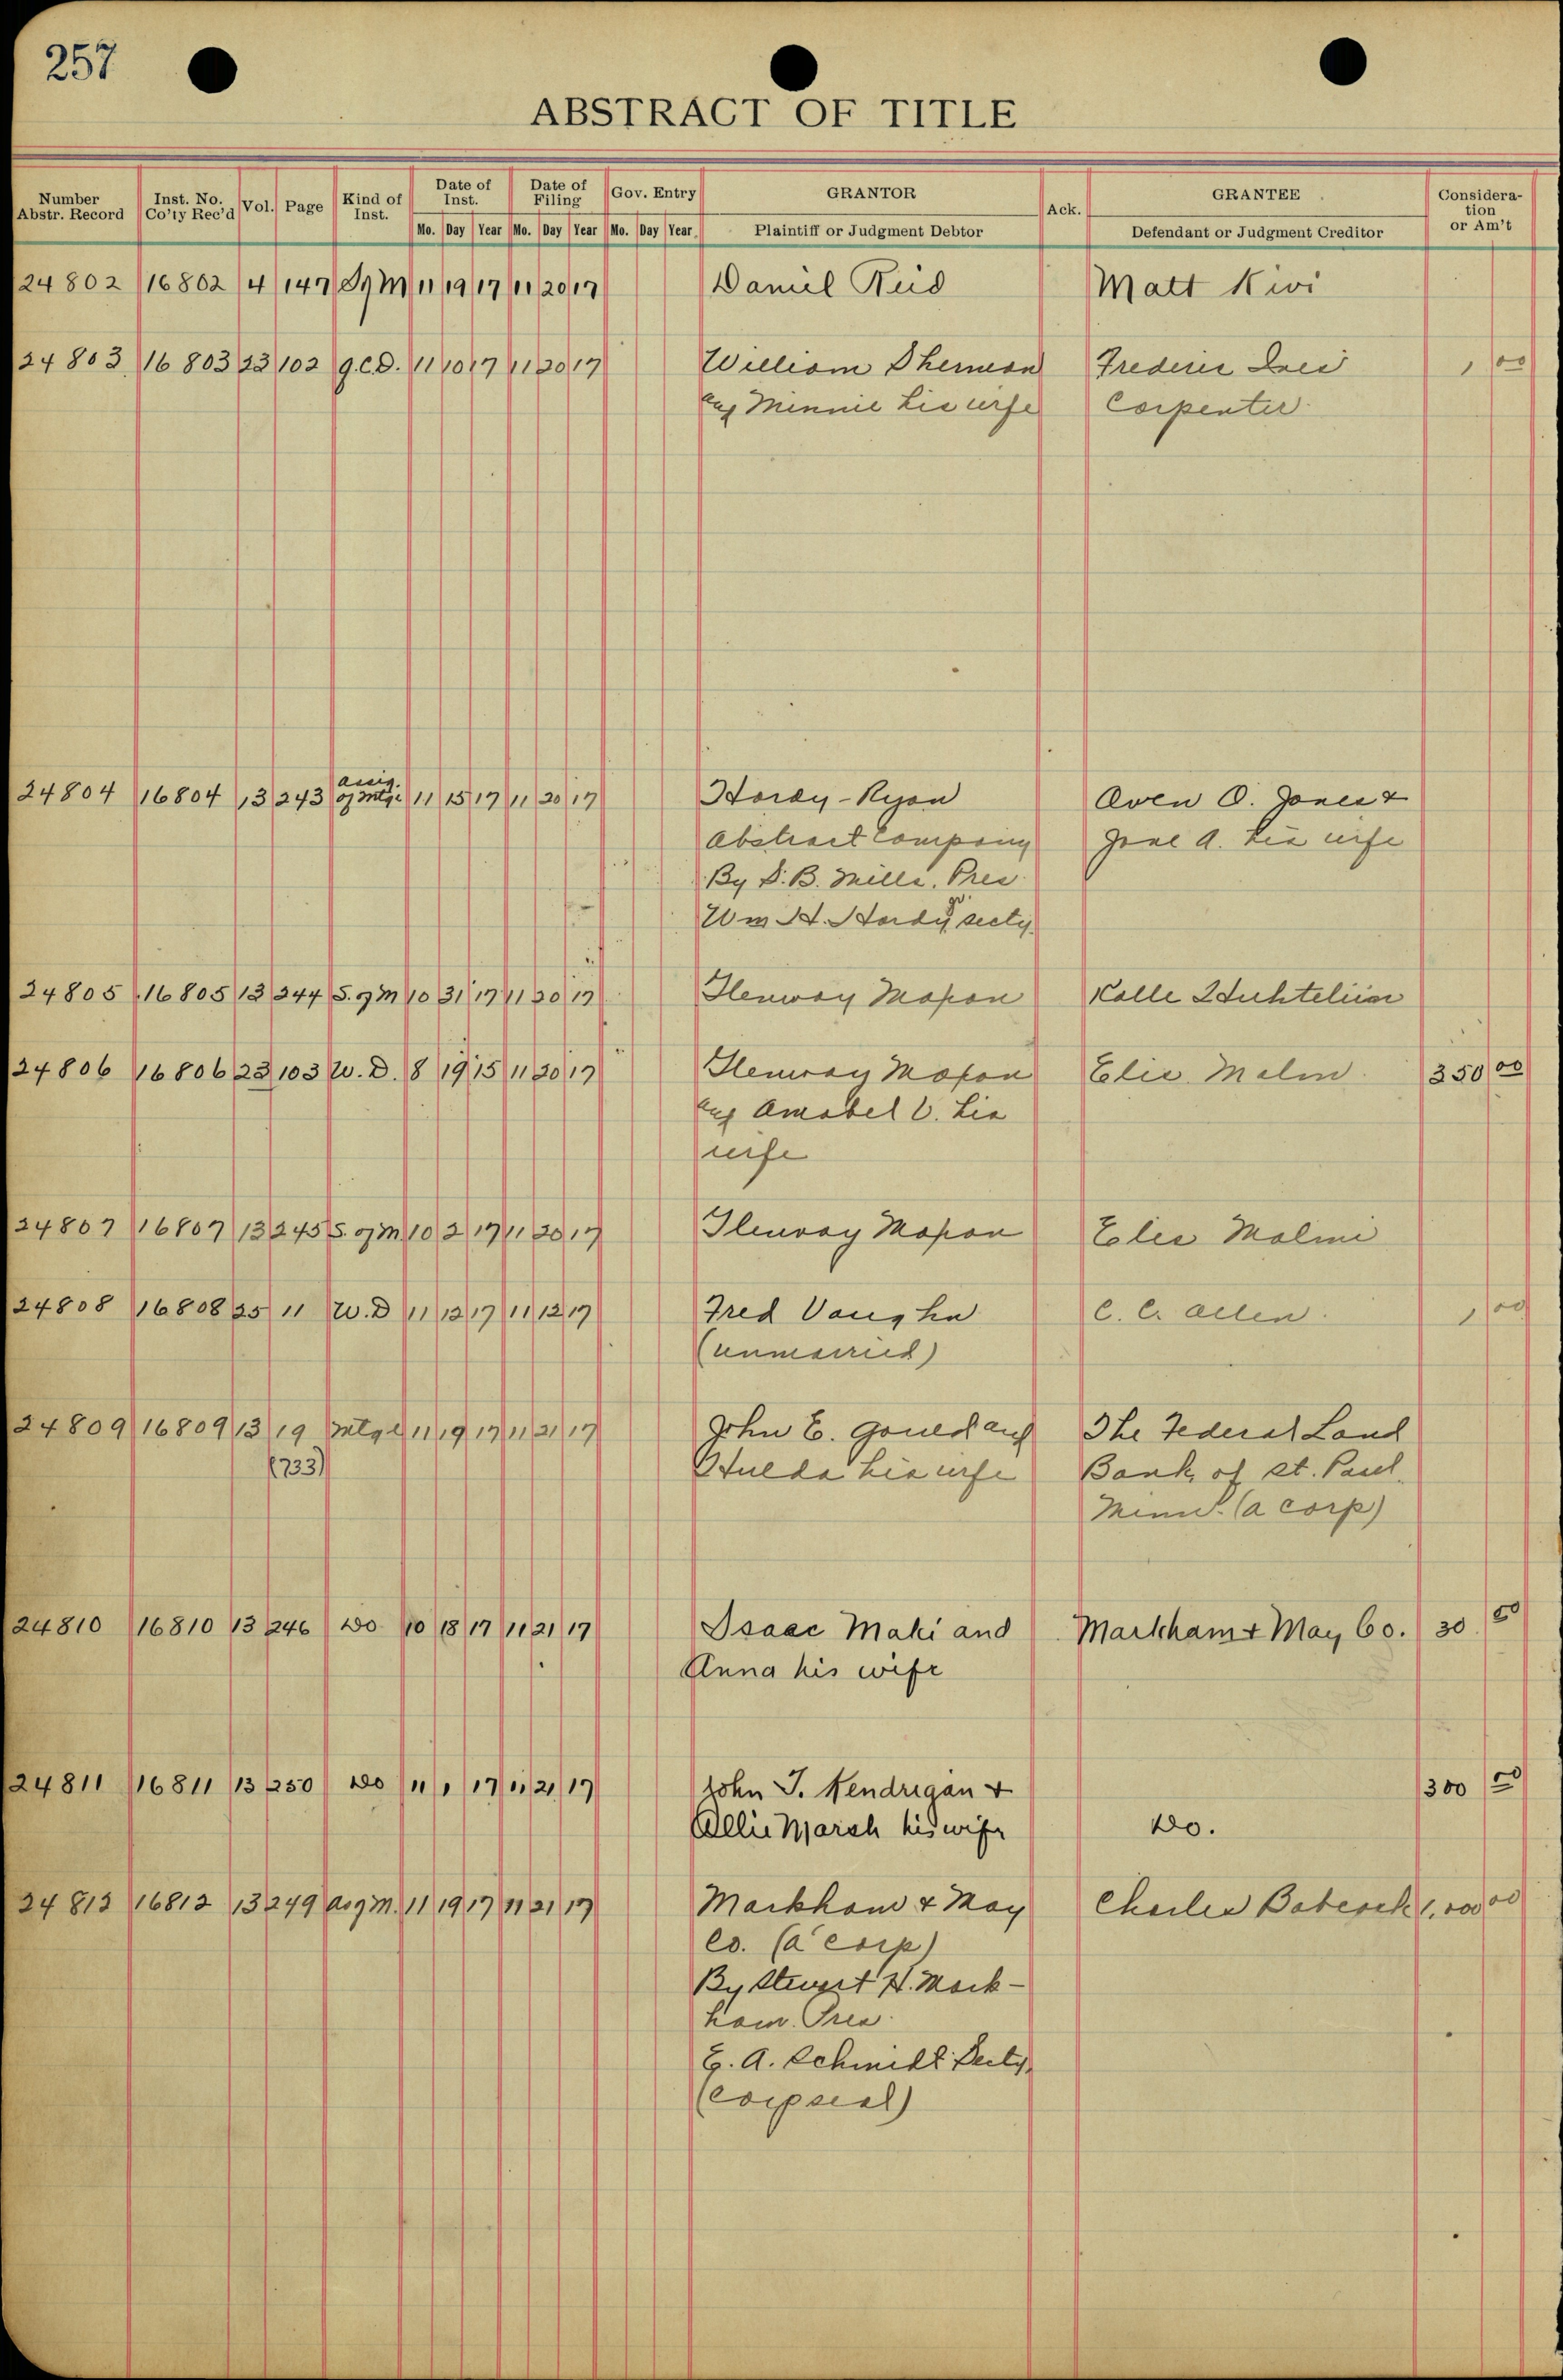 257
ABSTRACT OF TITLE
Number Abstr. Record Inst. No. Co'ty Rec'd Vol. Page Kind of Inst. Date of Inst. Date of Filing Gov. Entry GRANTOR Ack. GRANTEE Consideration or Am't
Mo. Day Year Mo. Day Year Mo. Day Year Plaintiff or Judgment Debtor Defendant or Judgment Creditor
24802 16802 4 147 S of M 11 19 17 11 20 17 Daniel Reid Matt Kivi
24803 16803 23 102 Q.C.D. 11 10 17 11 20 17 William Sherman Frederic 1 00
and Minnie his wife Carpenter
24804 16804 13 243 assig. of mtge 11 15 17 11 20 17 Hardy-Ryan Oven O. Jones &
Abstract Company Jane A. his wife
By D. B. Mills. Pres
Wm H. Hardy secty.
24805 16805 13 244 S. of M 10 31 17 11 20 17 Glenway Maxon Kalle
24806 16806 23 103 W. D. 8 19 15 11 20 17 Glenway Maxon Elis Malm 350 00
and Amabel V. his
wife
24807 16807 13 245 S. of M 10 2 17 11 20 17 Glenway Maxon Elis Malmi
24808 16808 25 11 W. D 11 12 17 11 12 17 Fred Vaughn C. C. Allen. 1 00
(unmarried)
24809 16809 13 19 Mtge 11 19 17 11 21 17 John E. Gould and The Federal Land
(733) Hulda his wife Bank of St. Paul.
Minn. (a corp)
24810 16810 13 246 Do 10 18 17 11 21 17 Isaac Maki and Markham & May Co. 30 50
Anna his wife
24811 16811 13 250 Do 11 1 17 11 21 17 John J. Kendrigan & 300 00
Allie Marsh his wife Do.
24812 16812 13 249 As of M. 11 19 17 11 21 17 Markham & May Charles Babcock 1,000 00
Co. (a corp)
By Stewart H. Mark-
ham. Pres.
G. A. Schmidt Secty.
(corp seal)